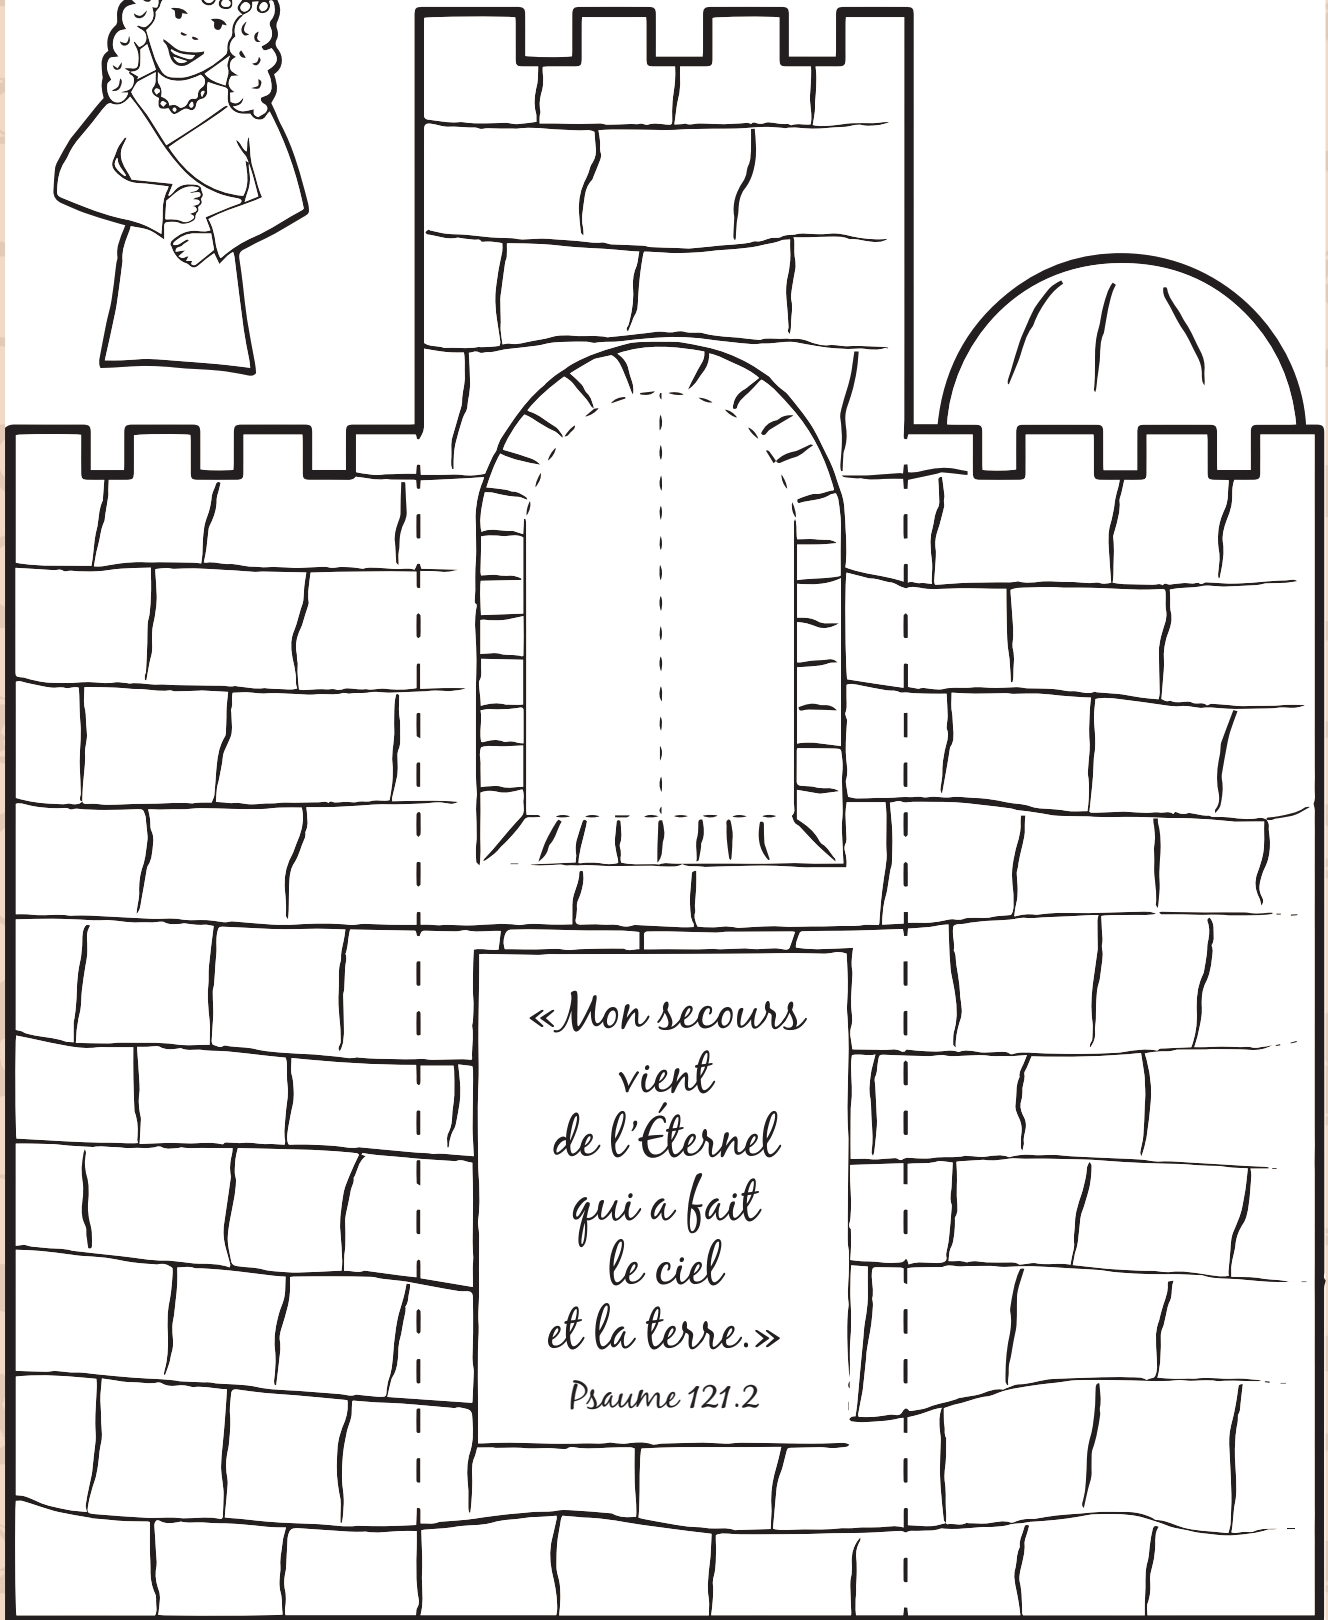 «Mon secours
vient
de l'Éternel
qui a fait
le ciel
et la terre.»
Psaume 121.2